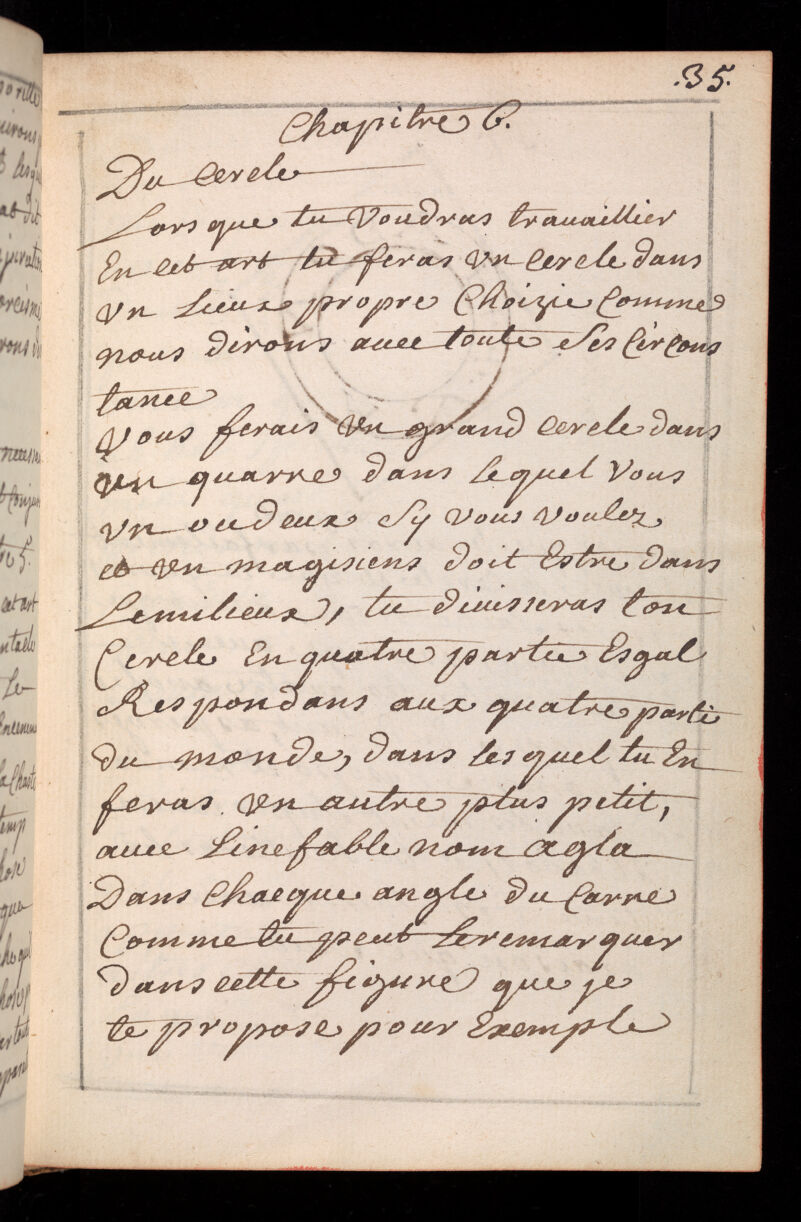 .35.
Chapitre 6.
Du Cercle
Lors que tu Voudras trauaillier
En cet art tu feras Vn Cercle dans
Vn Lieux propre Choizie Comme
nous dirons auec toute Ses Circons
tance
Vous ferais Vn grand Cercle dans
Vn quarre dans lequel Vous
Vn ou deux Sy Vous Voulez
et Vn magisiens doit Estre dans
Lemilieux, tu diuisseras ton
Cercle En quatre partie Esgal
Respondans aux quatre parti
du monde, dans lesquel tu En
feras Vn autre plus petit,
auec Linefable nom agla
Dans Chacque angle du Carre
Comme tu peut Le remarquer
dans cette figure que je
te propose pour Exemple